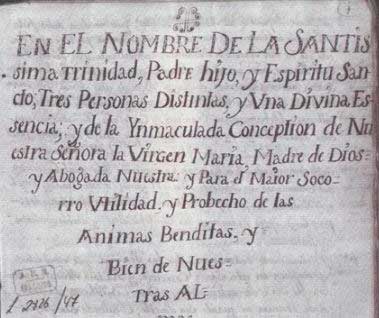 EN EL NOMBRE DE LA SANTIS
sima Trinidad, Padre hijo, y Espiritu San-
cto; Tres Personas Distintas, y Vna Divina Es-
sencia; y de la Ynmaculada Conception de Nu
estra Señora la Virgen Maria, Madre de Dios-
y Abogada Nuestra y Para el Maior Soco-
rro Vtilidad, y Probecho de las
Animas Benditas, y
Bien de Nues-
tras AL-
2126/47